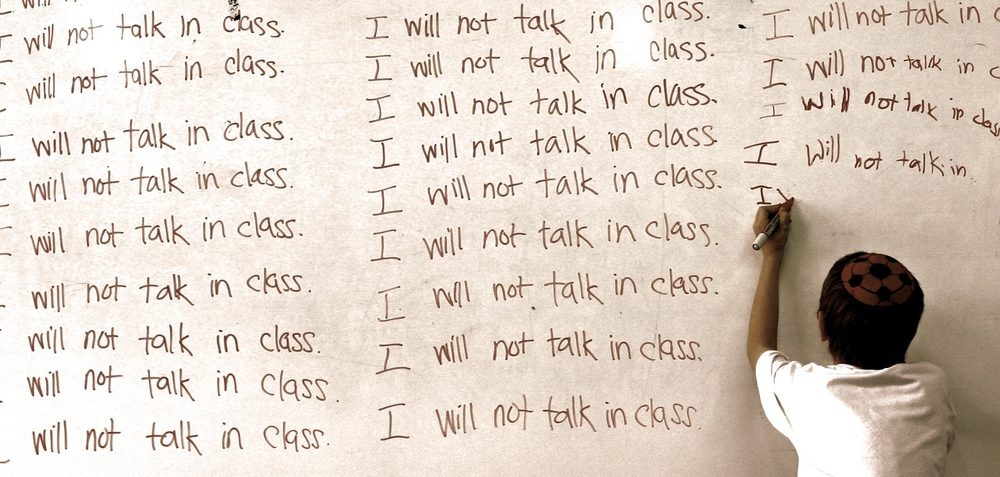 will
I will not talk in class.
will not talk in class.
I will not talk in class.
I will not talk in class.
will not talk in class.
will not talk in class.
will not talk in class.
will not talk in class.
will not talk in class.
I will not talk in class.
I will not talk in class.
I will not talk in class.
I will not talk in class.
I will not talk in class.
I will not talk in class.
I will not talk in class.
I will not talk in class.
I will not talk in class.
I will not talk in
I will not talk in
I will not talk in class
I Will not talk in.
I